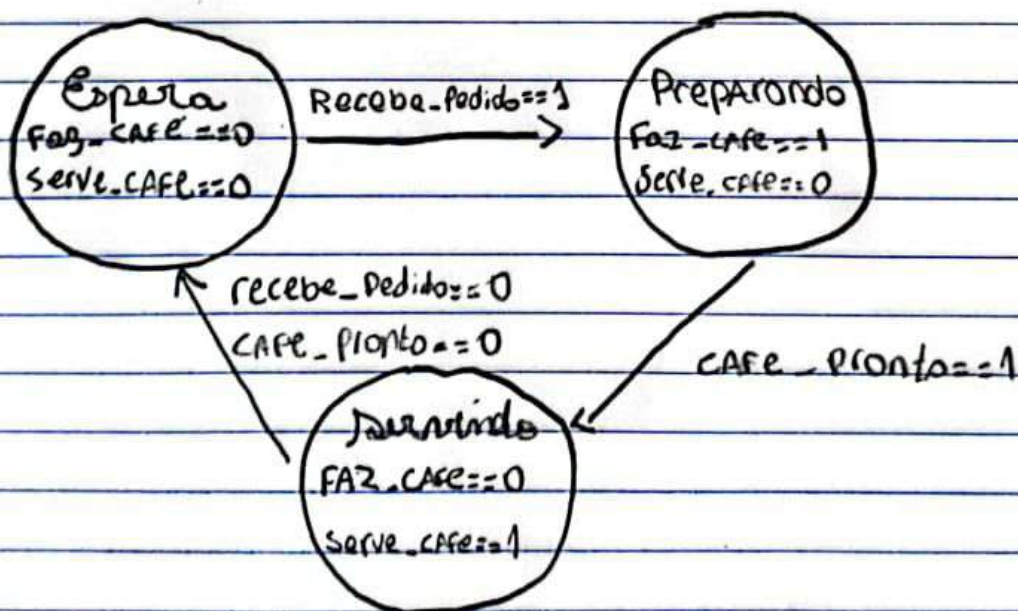 Espera
Faz_CAFE==0
Serve_CAFE==0
Recebe_Pedido==1
PrepArando
Faz_CAFE==1
Serve_CAFE==0
recebe_Pedido==0
CAFE_Pronto==0
CAFE_Pronto==1
Servindo
FAZ_CAFE==0
Serve_CAFE==1